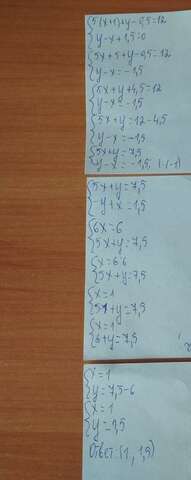 5(x+1)+y-0,5=12
y-x+1,5=0
5x+5+y-0,5=12
y-x=-1,5
5x+y+4,5=12
y-x=-1,5
5x+y=12-4,5
y-x=-1,5
5x+y=7,5
y-x=-1,5 |·(-1)
5x+y=7,5
-y+x=1,5
6x=6
5x+y=7,5
x=6:6
5x+y=7,5
x=1
5·1+y=7,5
x=1
y=7,5-6
x=1
y=1,5
Ответ: (1, 1,5)